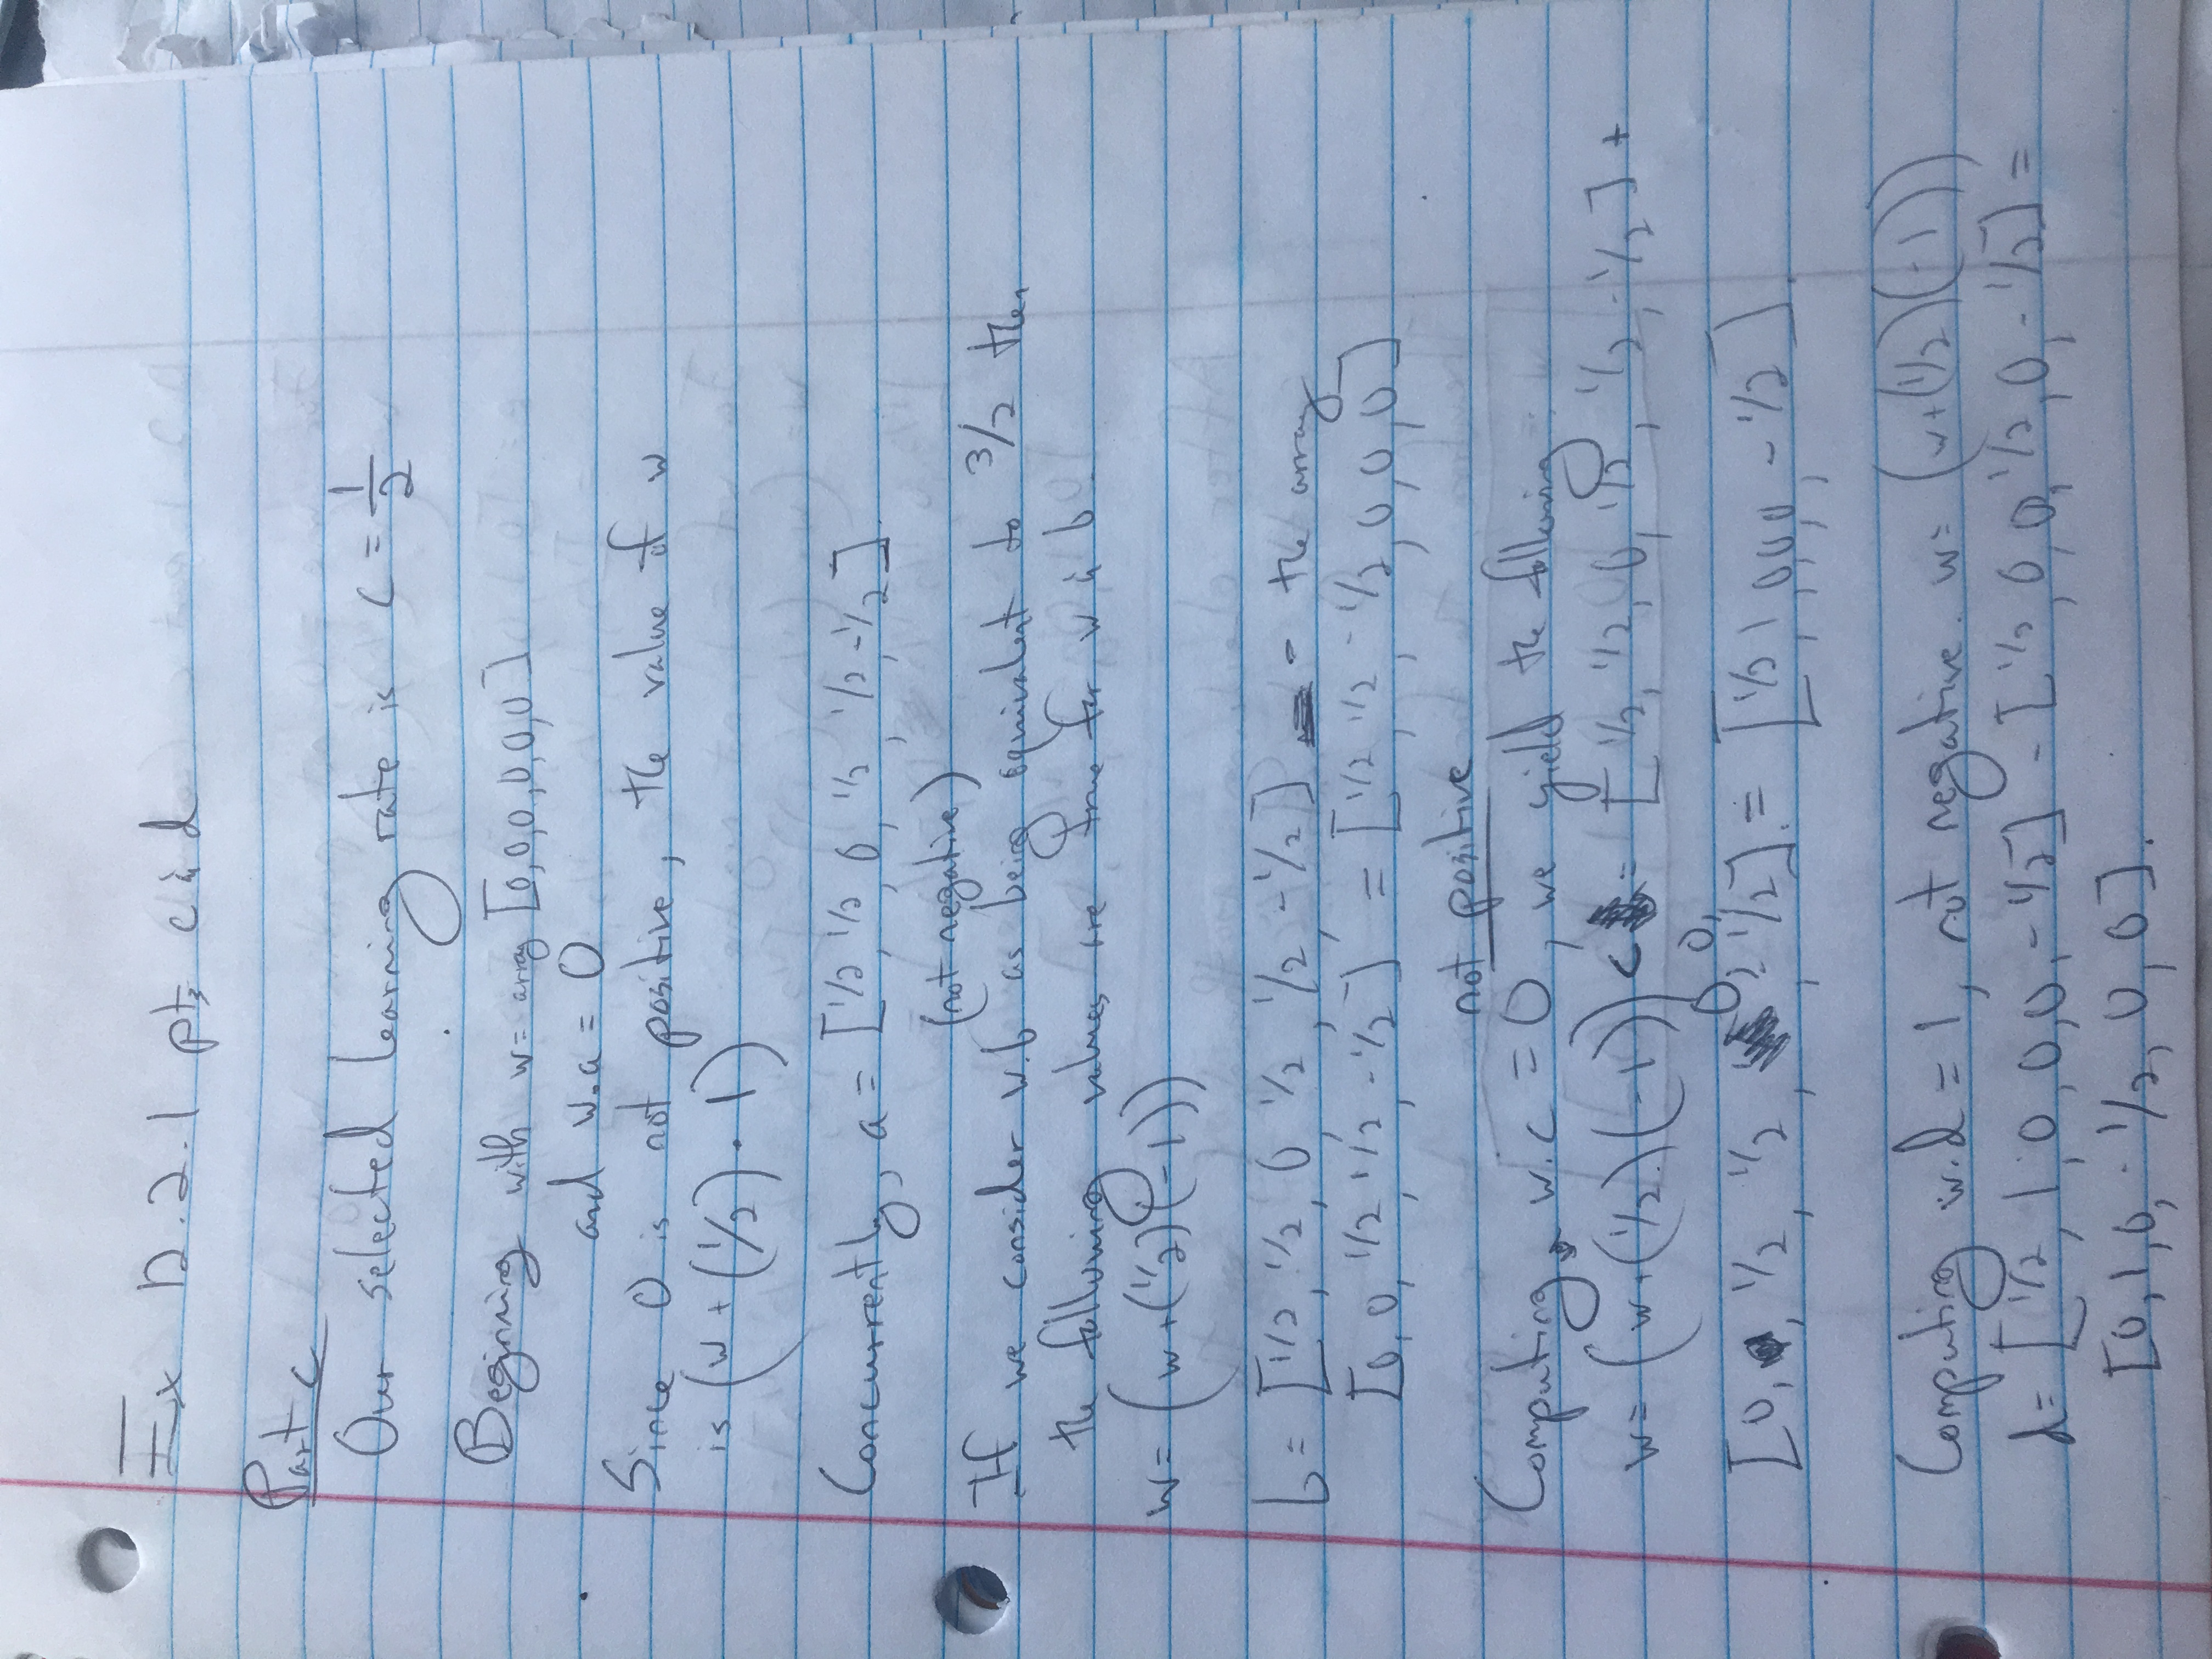 Ex 12.2.1 pts c & d
Part c
Our selected learning rate is c = 1/2
Beginning with w = array [0,0,0,0,0,0]
and w.a = 0
Since 0 is not positive, the value of w
is (w + (1/2) · 1)
Concurrently, a = [1/2, 1/2, 0, 1/2, 1/2, -1/2].
(not negative)
If we consider w.b as being equivalent to 3/2 then
the following values are true for w & b.
w = (w + (1/2)(-1))
b = [1/2, 1/2, 0, 1/2, 1/2, -1/2] - the array
[0, 0, 1/2, 1/2, -1/2] = [1/2, 1/2, -1/2, 0, 0, 0]
not positive
Computing w.c = 0, we yield the following:
w = (w + (1/2)(-1)) c = [1/2, 1/2, 0, 1/2, 1/2, -1/2] +
0, 0,
[0, 1/2, 1/2, , -1/2]. = [1/2, 1, 0, 0, 0, -1/2].
Computing w.d = 1, not negative. w = (w + (1/2)(-1))
d = [1/2, 1, 0, 0, 0, -1/2] - [1/2, 0, 0, 1/2, 0, -1/2] =
[0, 1, 0, -1/2, 0, 0].